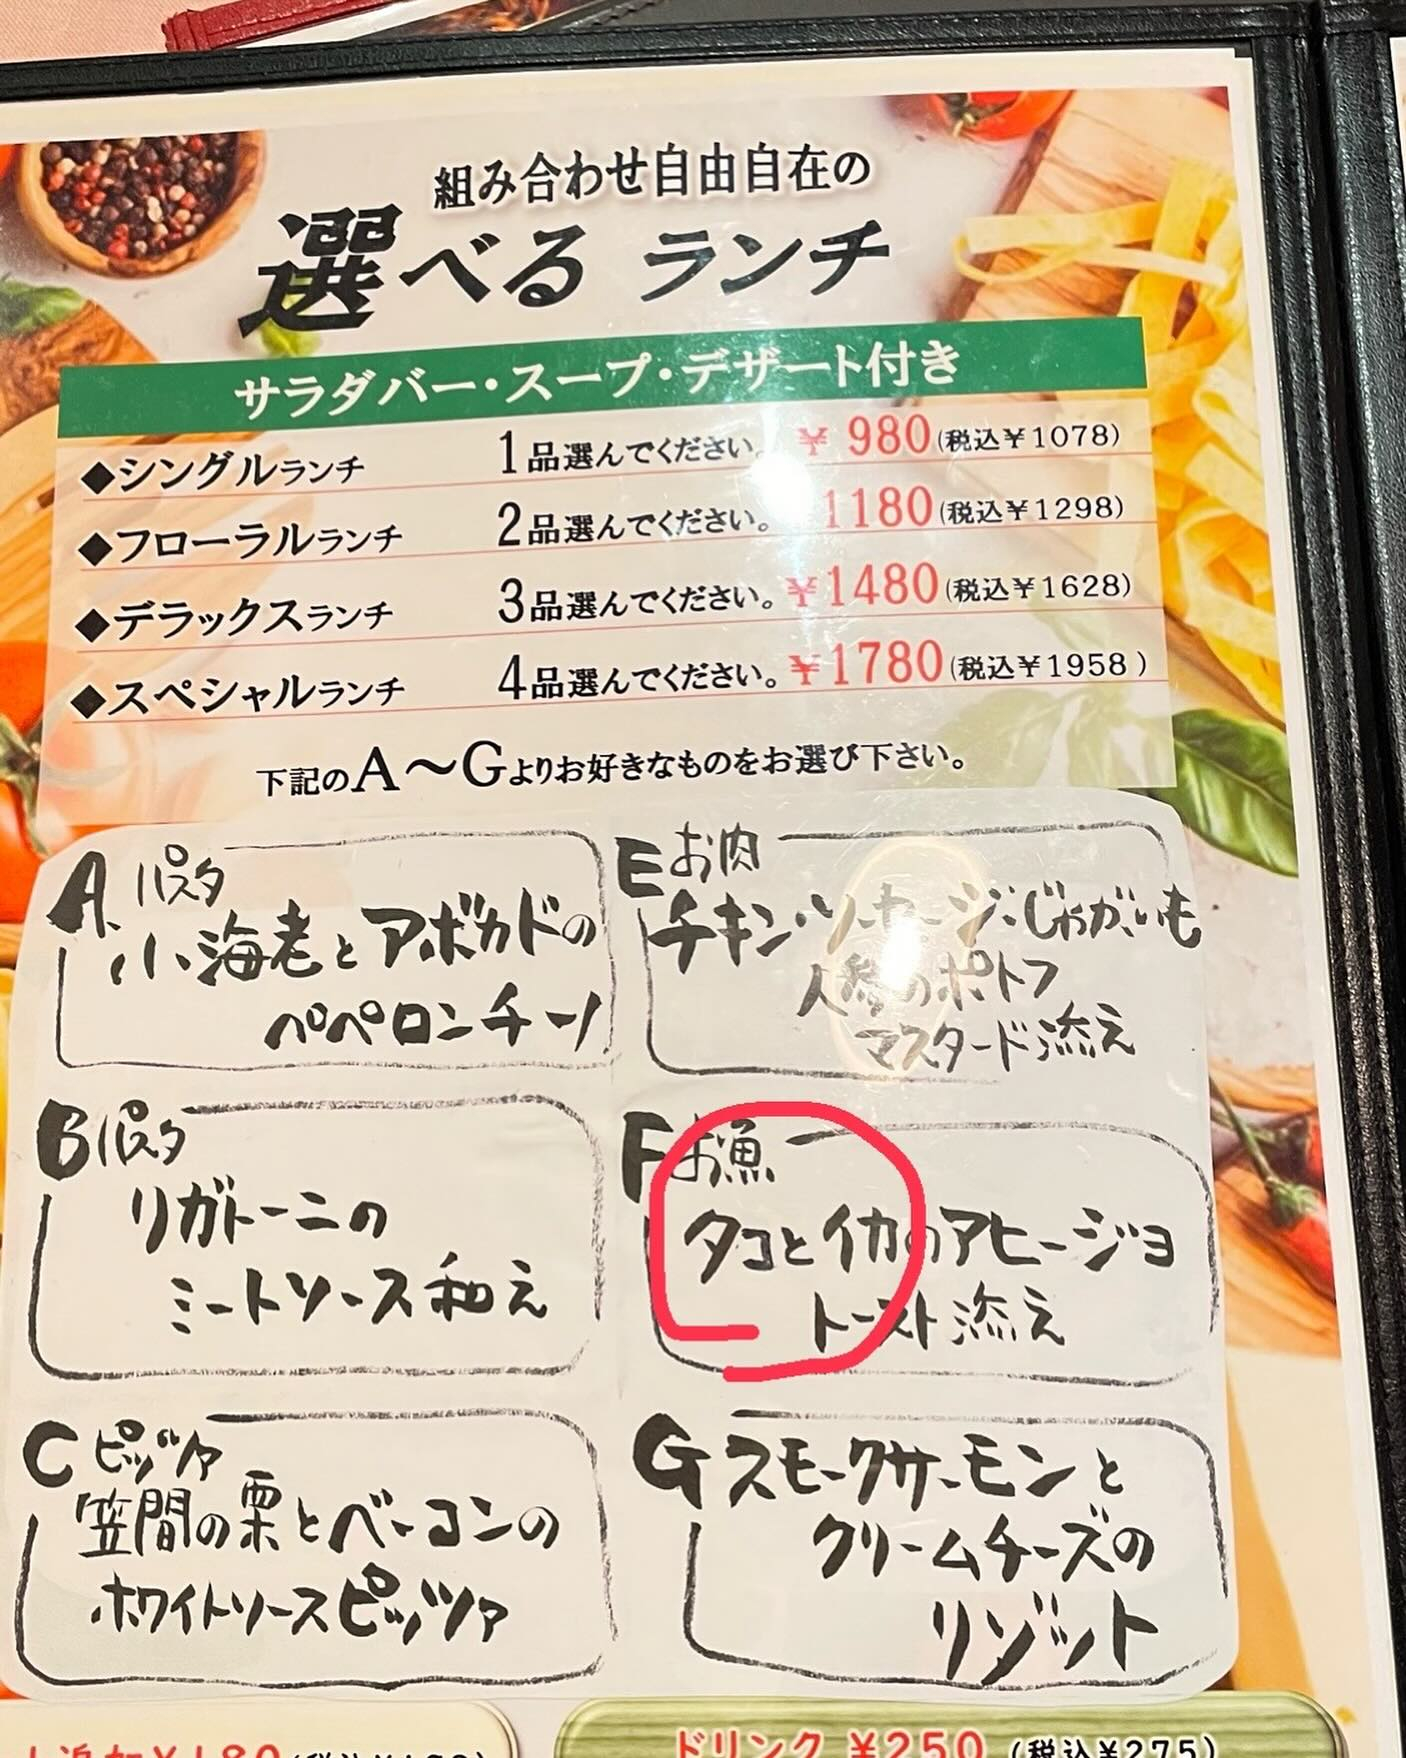 組み合わせ自由自在の
選べるランチ
サラダバー・スープ・デザート付き
◆シングルランチ 1品選んでください。 ¥980(税込¥1078)
◆フローラルランチ 2品選んでください。 1180(税込¥1298)
◆デラックスランチ 3品選んでください。 ¥1480(税込¥1628)
◆スペシャルランチ 4品選んでください。 ¥1780(税込¥1958)
下記のA〜Gよりお好きなものをお選び下さい。
A. パスタ
小海老とアボカドの
ペペロンチーノ
B パスタ
リガトーニの
ミートソース和え
C ピッツァ
笠間の栗とベーコンの
ホワイトソースピッツァ
E お肉
チキン・ソーセージ・じゃがいも
人参のポトフ
マスタード添え
F お魚
タコとイカのアヒージョ
トースト添え
G スモークサーモンと
クリームチーズの
リゾット
ドリンク ¥250(税込¥275)